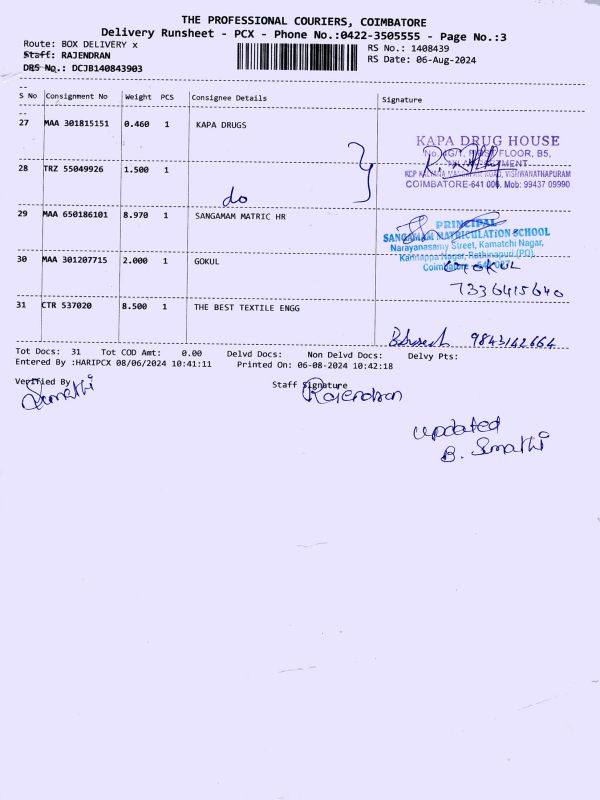 THE PROFESSIONAL COURIERS, COIMBATORE
Delivery Runsheet - PCX - Phone No.:0422-3505555 - Page No.:3
Route: BOX DELIVERY x RS No.: 1408439
Staff: RAJENDRAN RS Date: 06-Aug-2024
DRS No.: DCJB140843903
S No Consignment No Weight PCS Consignee Details Signature
27 MAA 301815151 0.460 1 KAPA DRUGS
KAPA DRUG HOUSE
FLOOR, B5,
28 TRZ 55049926 1.500 1 do
VISHWANATHAPURAM
COIMBATORE-641 006. Mob: 99437 09990
29 MAA 650186101 8.970 1 SANGAMAM MATRIC HR
PRINCIPAL
SANGAMAM MATRICULATION SCHOOL
Narayanasamy Street, Kamatchi Nagar,
Kannappa Nagar, Rathinapuri (PO)
30 MAA 301207715 2.000 1 GOKUL
GOKUL
7336415640
31 CTR 537020 8.500 1 THE BEST TEXTILE ENGG
9843142664
Tot Docs: 31 Tot COD Amt: 0.00 Delvd Docs: Non Delvd Docs: Delvy Pts:
Entered By :HARIPCX 08/06/2024 10:41:11 Printed On: 06-08-2024 10:42:18
Verified By Staff Signature
Sumathi Rajendran
updated
B. Sumathi